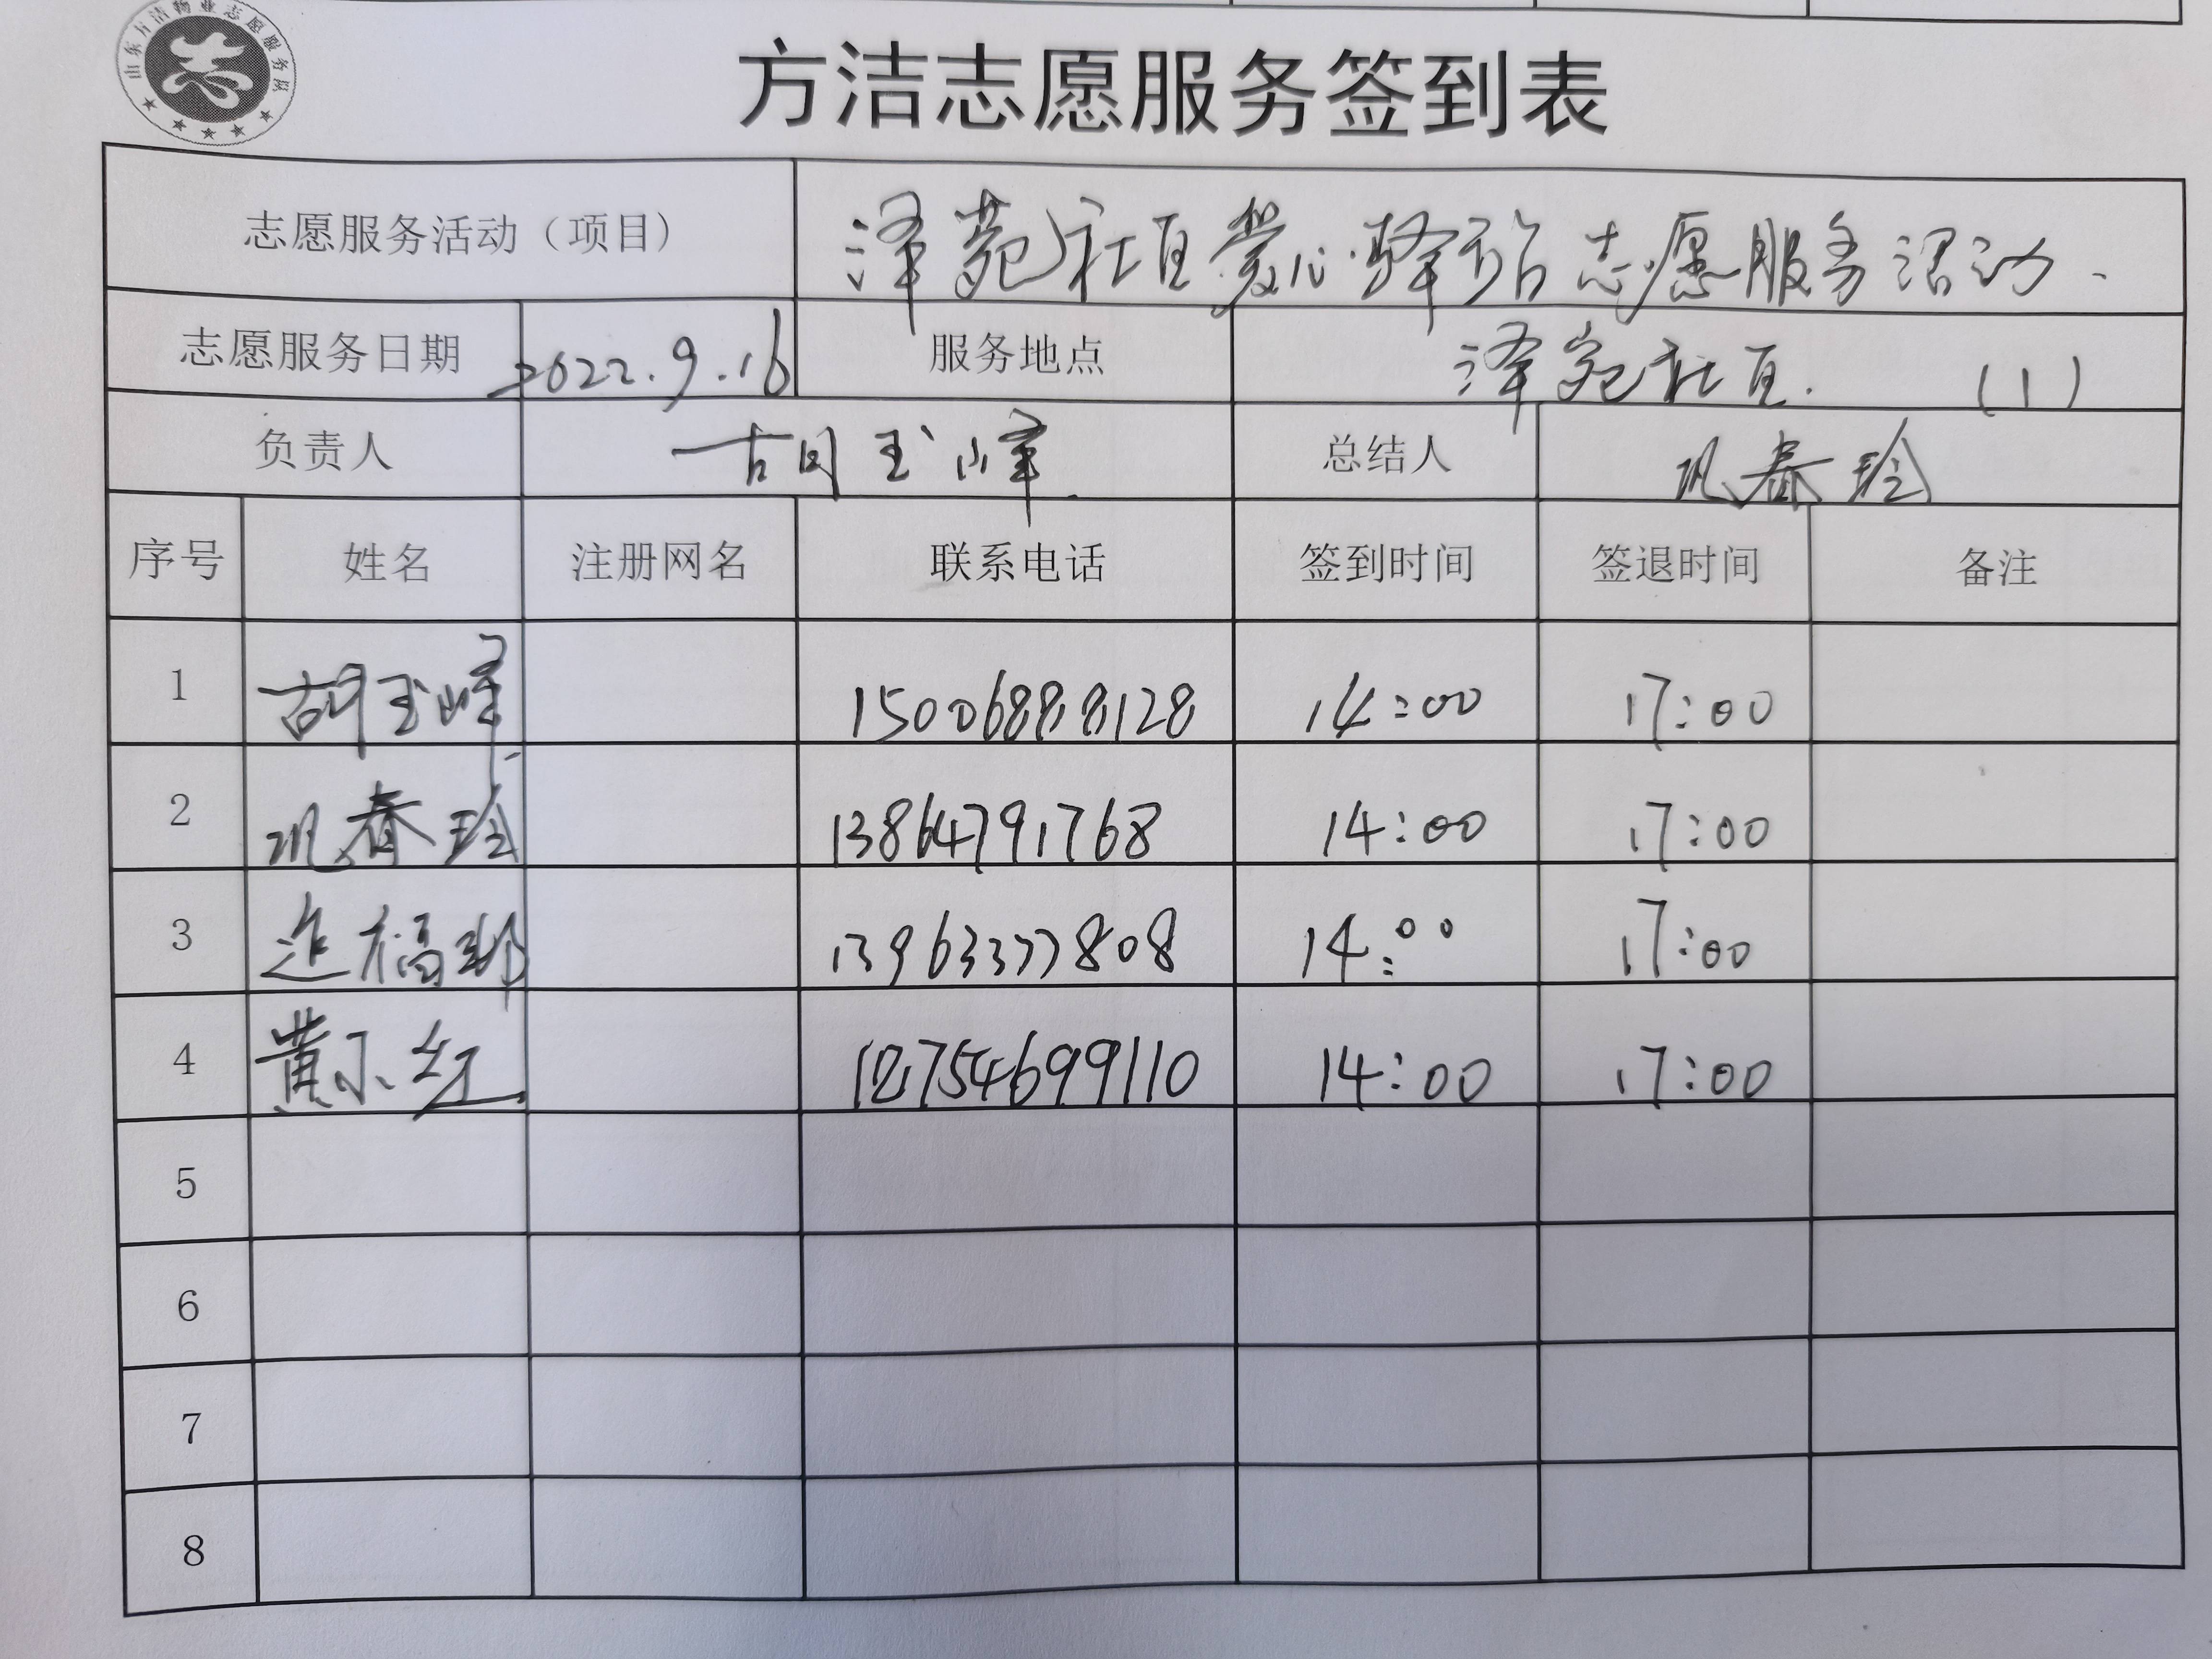 山东方洁物业志愿服务队
方洁志愿服务签到表
志愿服务活动（项目） 泽苑社区爱心驿站志愿服务活动.
志愿服务日期 2022.9.16 服务地点 泽苑社区. (1)
负责人 胡玉峰 总结人 巩春玲
序号 姓名 注册网名 联系电话 签到时间 签退时间 备注
1 胡玉峰 15006888128 14:00 17:00
2 巩春玲 13864791768 14:00 17:00
3 13963377808 14:00 17:00
4 黄小红 14:00 17:00
5
6
7
8